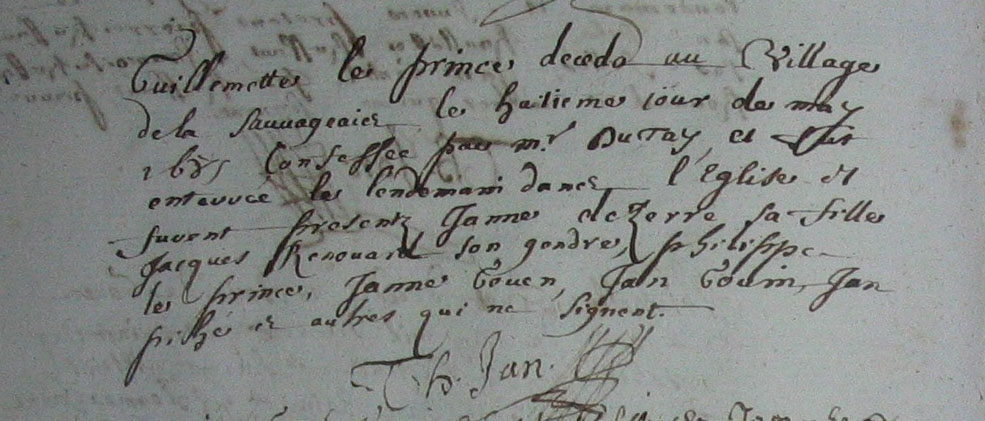 Guillemette le prince deceda au Village
de la Sauvageaiez le huitieme jour de may
Confessée par mr. Dutay, et fut
enterree le lendemain danz l'Eglise et
furent presentz Janne dezerre sa fille
Jacques Renouard son gendre, philippe
le prince, Janne Gouen, Jan Gouin, Jan
piché et autres qui ne signent.
Th. Jan.